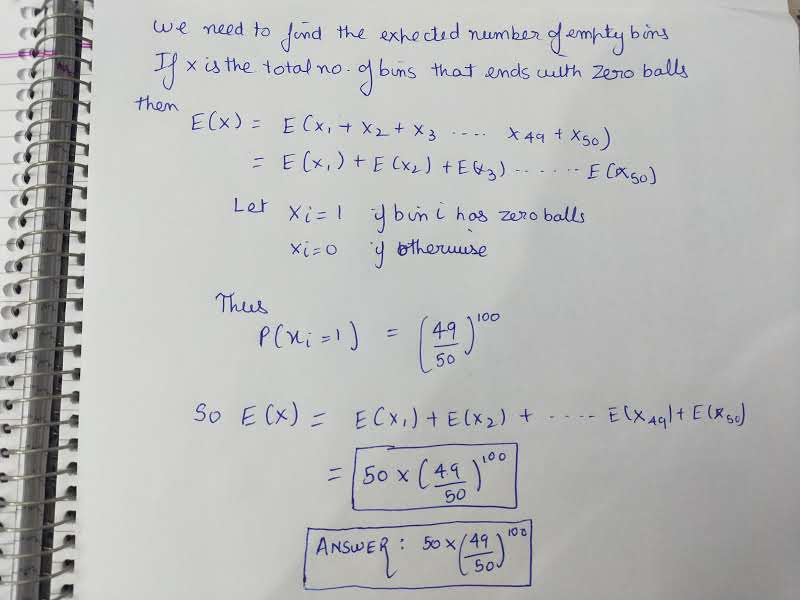 We need to find the expected number of empty bins
If x is the total no. of bins that ends with zero balls
then
E(x) = E(x₁ + x₂ + x₃ .... x₄₉ + x₅₀)
= E(x₁) + E(x₂) + E(x₃) ...... E(x₅₀)
Let xi = 1 if bin i has zero balls
xi = 0 if otherwise
Thus
P(xi = 1) = (49/50)¹⁰⁰
So E(x) = E(x₁) + E(x₂) + ..... E(x₄₉) + E(x₅₀)
= 50 × (49/50)¹⁰⁰
ANSWER : 50 × (49/50)¹⁰⁰